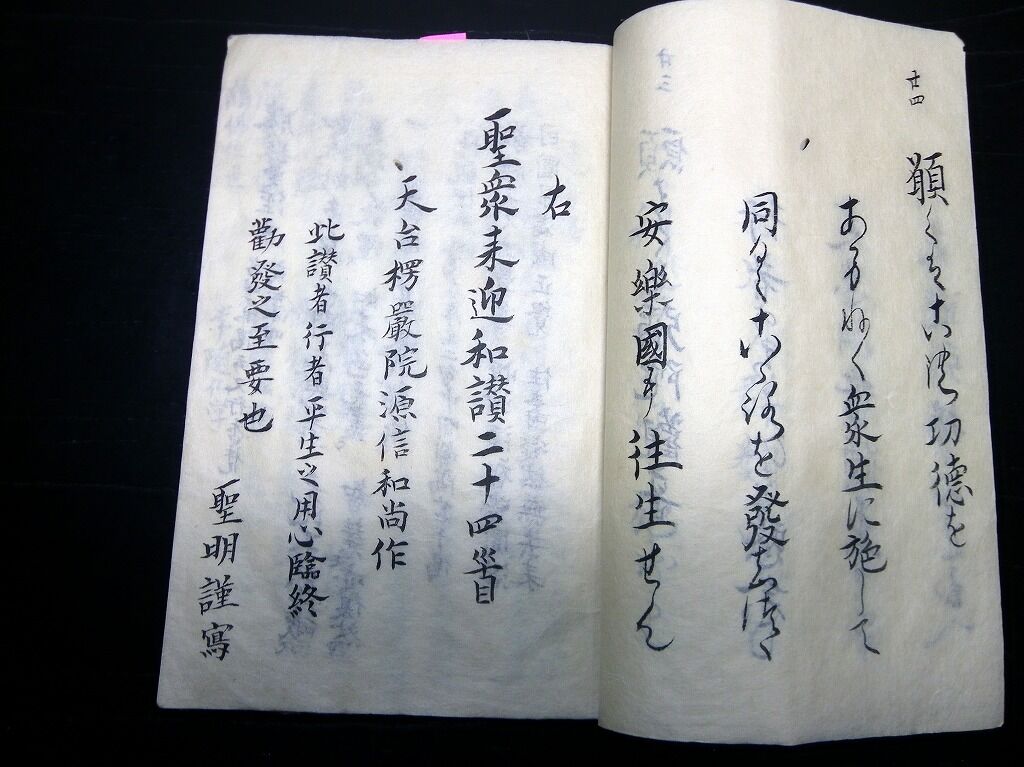 廿四
願くはこの功德を
あまねく衆生に施して
同しくこゝろを發しつゝ
安樂國に往生せん
右
聖衆来迎和讃二十四首
天台楞嚴院源信和尚作
此讃者行者平生之用心臨終
勸發之至要也
聖明謹寫